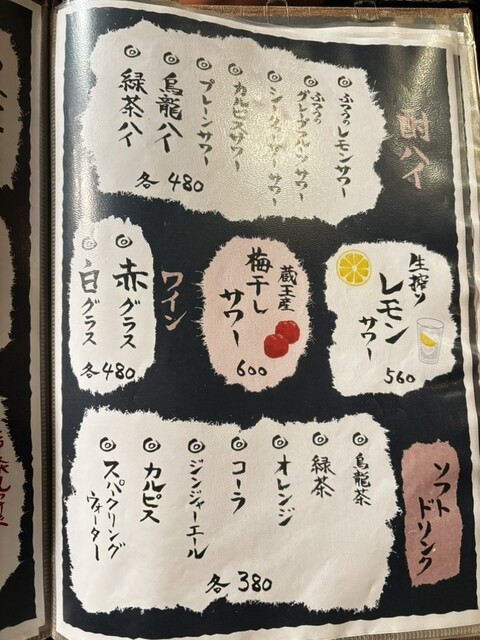 酎ハイ
◎ふつうのレモンサワー
◎ふつうのグレープフルーツサワー
◎シークヮーサーサワー
◎カルピスサワー
◎プレーンサワー
◎烏龍ハイ
◎緑茶ハイ
各480
生搾り
レモン
サワー
560
蔵王産
梅干し
サワー
600
ワイン
◎赤グラス
◎白グラス
各480
ソフト
ドリンク
◎烏龍茶
◎緑茶
◎オレンジ
◎コーラ
◎ジンジャーエール
◎カルピス
◎スパークリング
ウォーター
各380